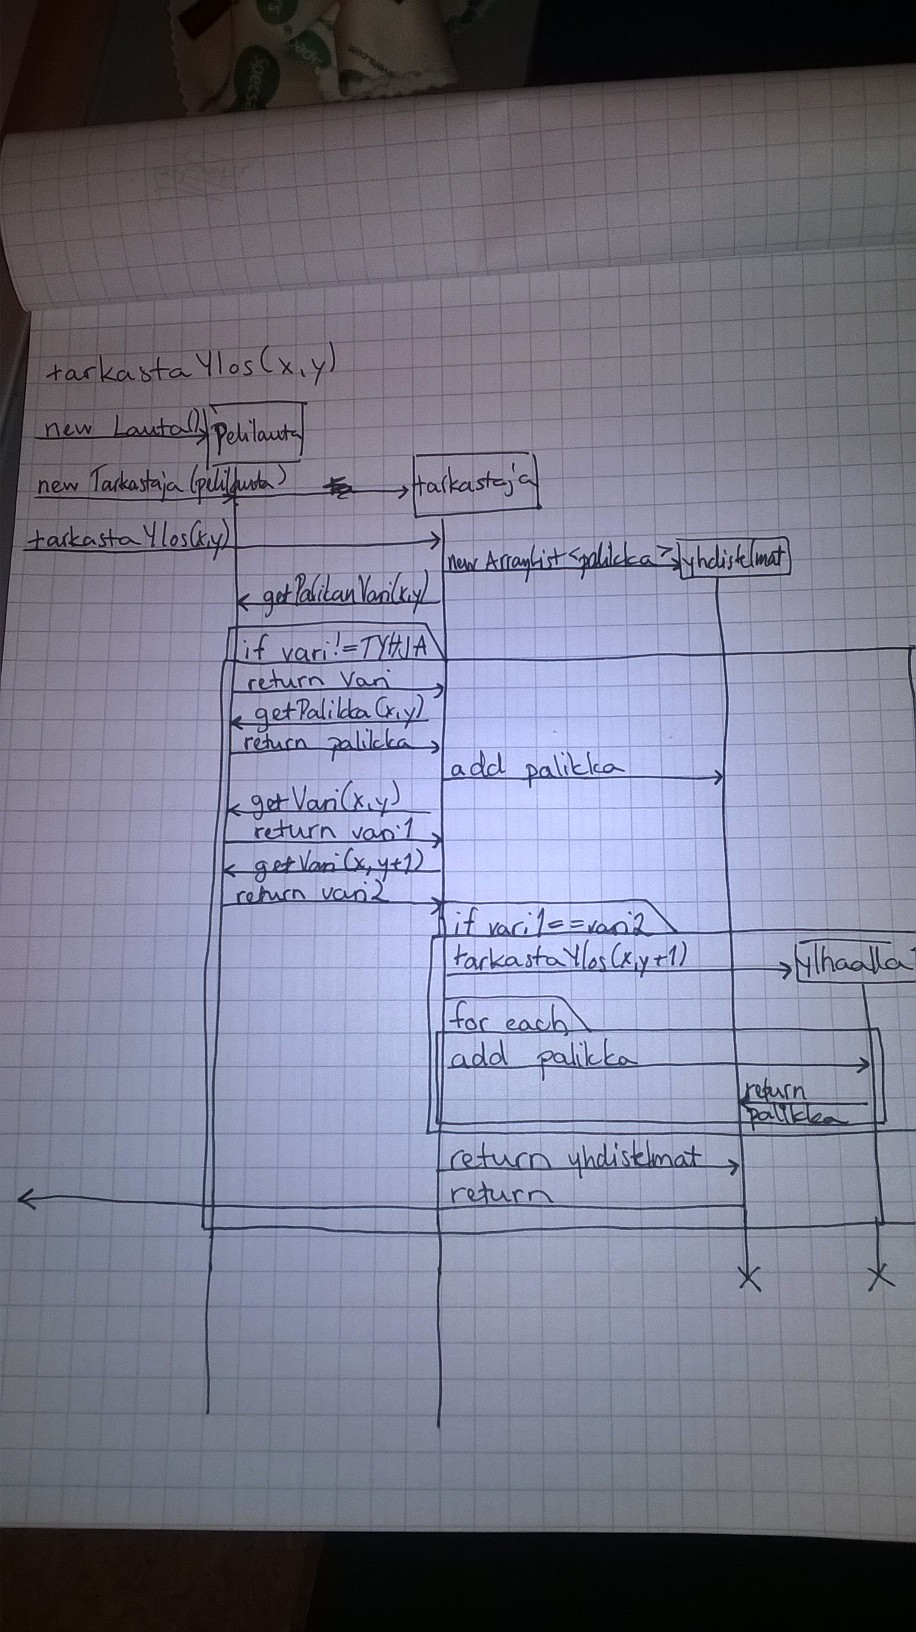 tarkastaYlos(x,y)
new Lauta() Pelilauta
new Tarkastaja(pelilauta) tarkastaja
tarkastaYlos(x,y)
new ArrayList<palikka> yhdistelmat
getPalikanVari(x,y)
if vari!=TYHJA
return vari
getPalikka(x,y)
return palikka
add palikka
getVari(x,y)
return vari1
getVari(x,y+1)
return vari2
if vari1==vari2
tarkastaYlos(x,y+1) ylhaalla
for each
add palikka
return
palikka
return yhdistelmat
return